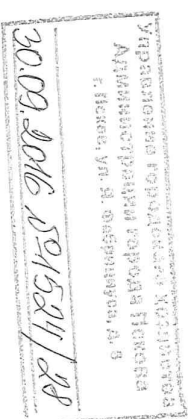 Управление городского хозяйства
Администрации города Пскова
г. Псков, ул. Я. Фабрициуса д. 8
30.09.2016 № 1574/28